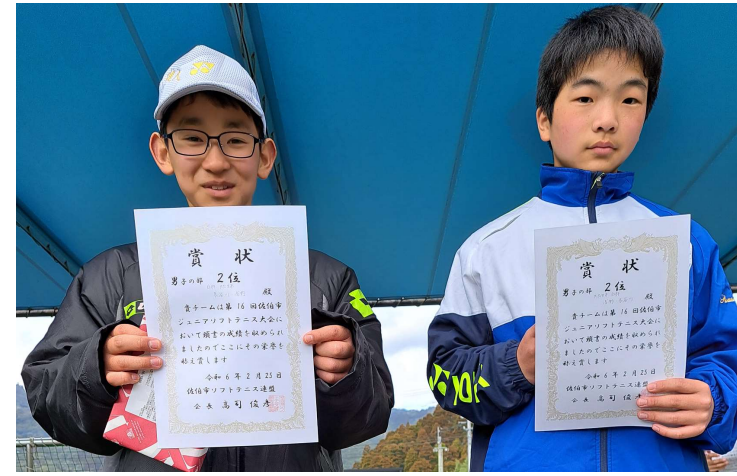 賞状
男子の部 2位
殿
貴チームは第16回佐伯市
ジュニアソフトテニス大会に
おいて頭書の成績を収められ
ましたのでここにその栄誉を
称え賞します
令和6年2月25日
佐伯市ソフトテニス連盟
会長 高司俊彦
賞状
男子の部 2位
殿
貴チームは第16回佐伯市
ジュニアソフトテニス大会に
おいて頭書の成績を収められ
ましたのでここにその栄誉を
称え賞します
令和6年2月25日
佐伯市ソフトテニス連盟
会長 高司俊